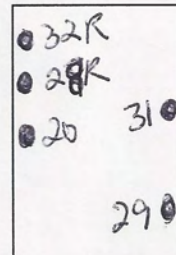 32R
28R
20
31
29